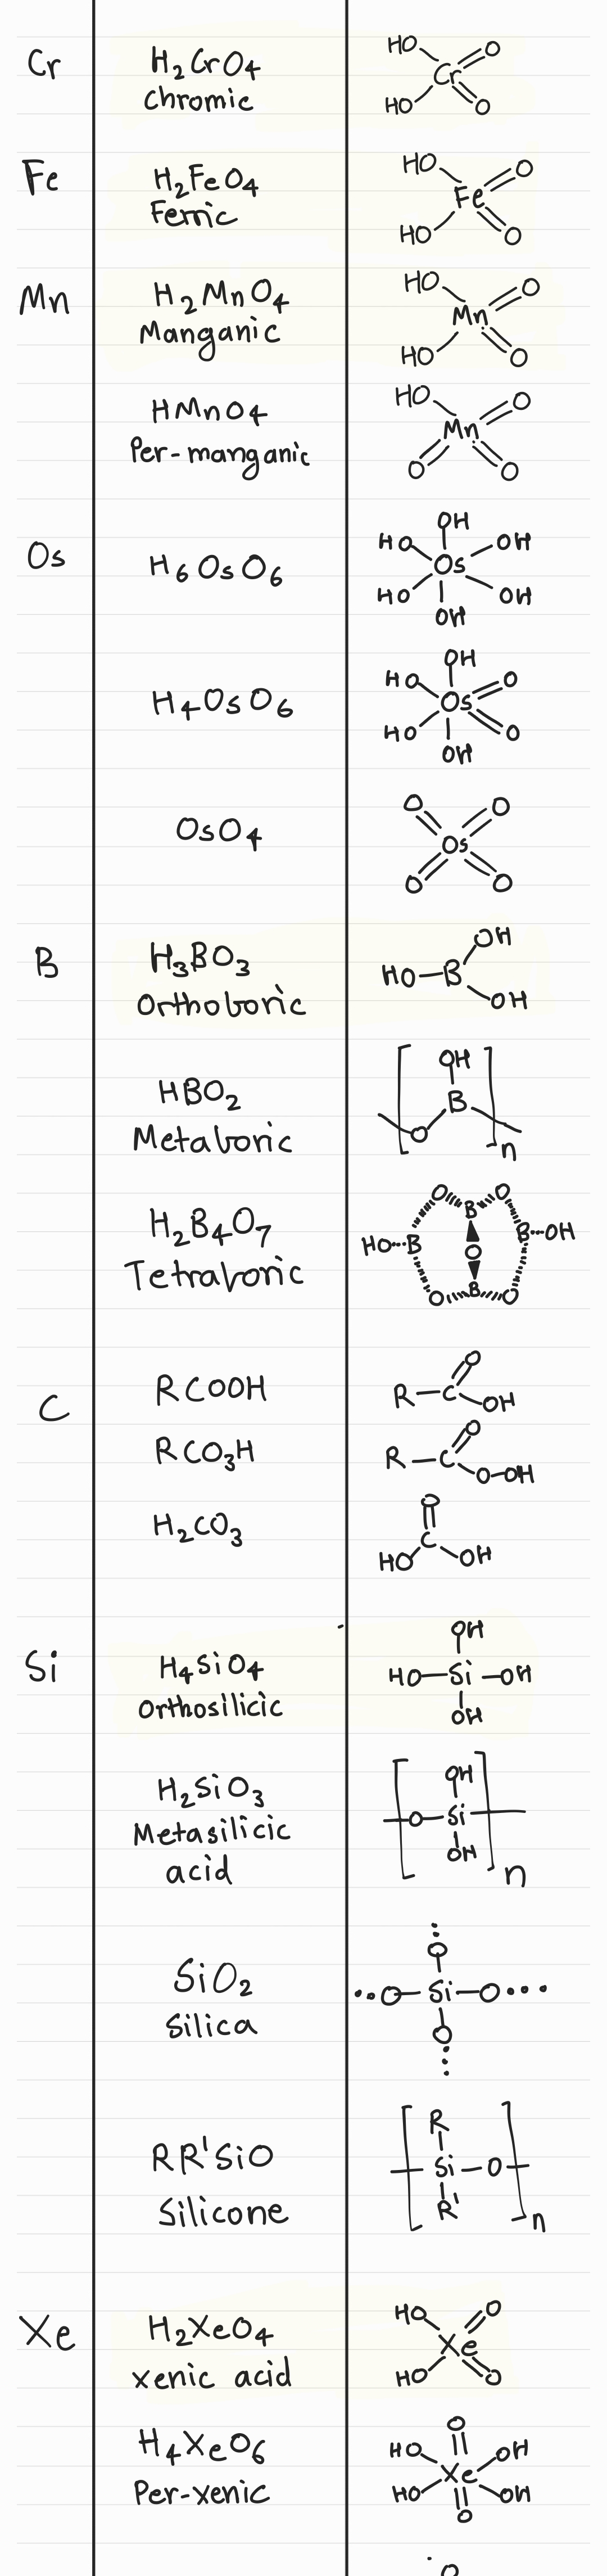 Cr
H2CrO4
Chromic
HO O
Cr
HO O
Fe
H2FeO4
Ferric
HO O
Fe
HO O
Mn
H2MnO4
Manganic
HO O
Mn
HO O
HMnO4
Per-manganic
HO O
Mn
O O
Os
H6OsO6
OH
HO OH
Os
HO OH
OH
H4OsO6
OH
HO O
Os
HO O
OH
OsO4
O O
Os
O O
B
H3BO3
Orthoboric
OH
HO-B
OH
HBO2
Metaboric
OH
B
O
n
H2B4O7
Tetraboric
O B O
HO B O B OH
O B O
C
RCOOH
O
R-C
OH
RCO3H
O
R-C
O-OH
H2CO3
O
C
HO OH
Si
H4SiO4
Orthosilicic
OH
HO-Si-OH
OH
H2SiO3
Metasilicic
acid
OH
O-Si
OH
n
SiO2
Silica
O
...O-Si-O...
O
RR'SiO
Silicone
R
Si-O
R'
n
Xe
H2XeO4
xenic acid
HO O
Xe
HO O
H4XeO6
Per-xenic
O
HO OH
Xe
HO OH
O